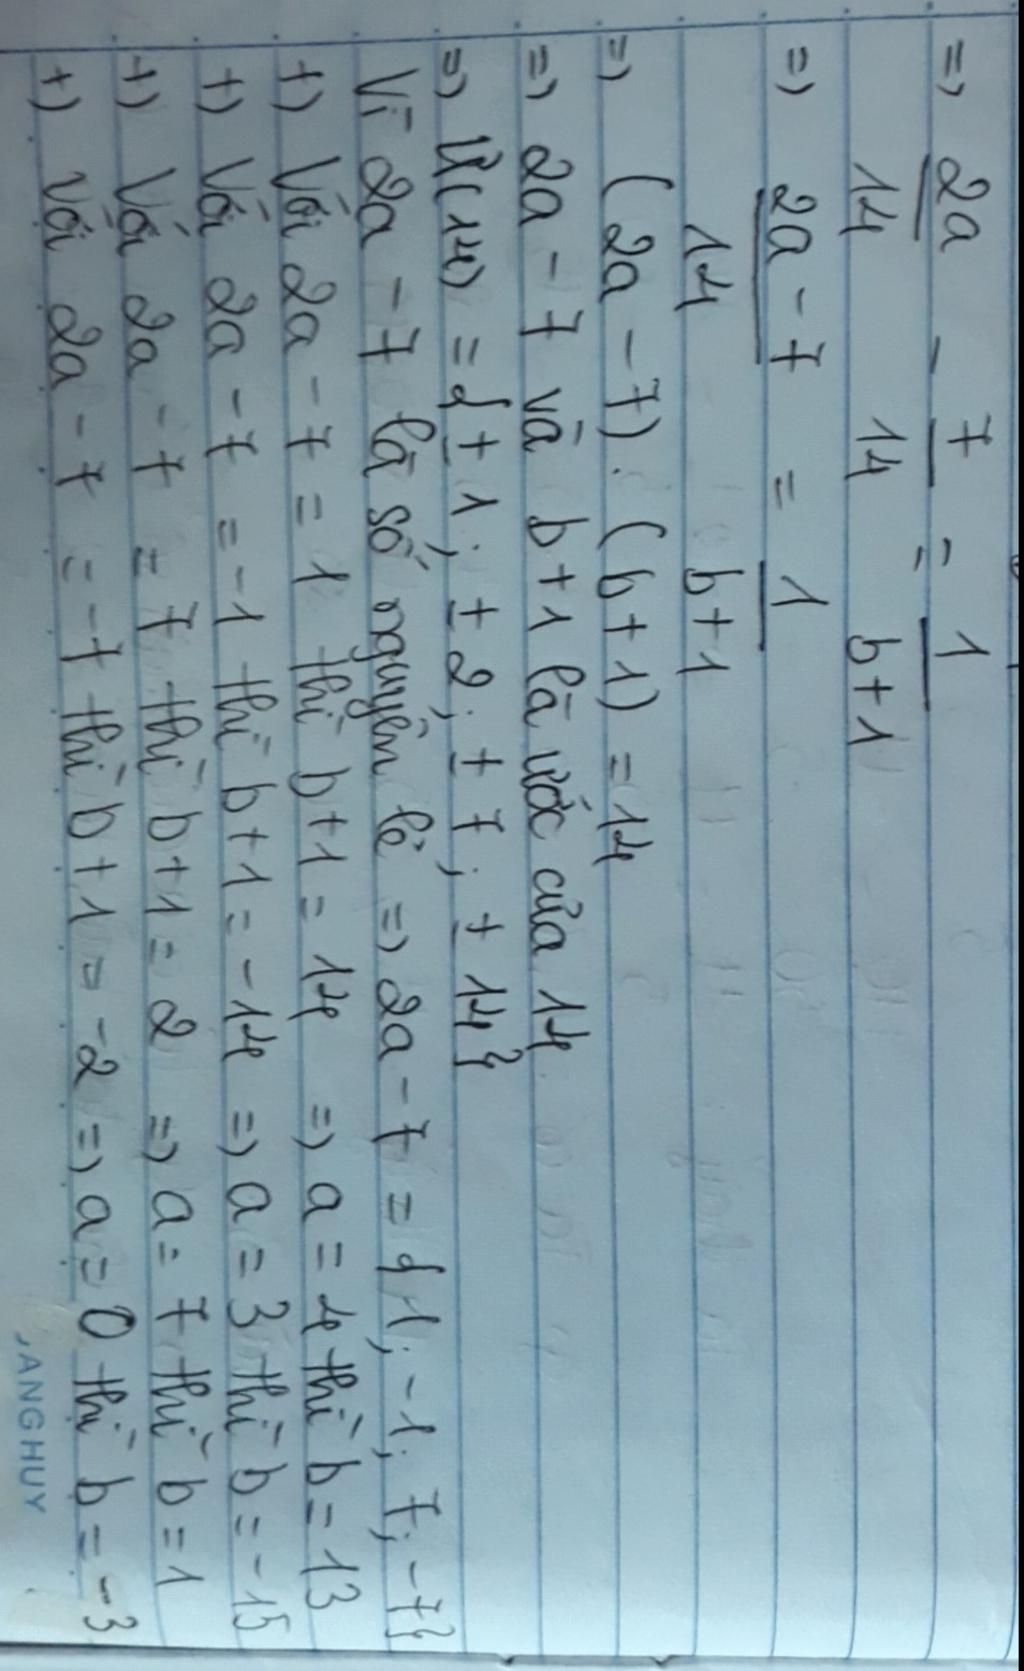 => 2a/14 - 7/14 = 1/b+1
=> 2a - 7/14 = 1/b+1
=> (2a - 7). (b+1) = 14
=> 2a - 7 và b+1 là ước của 14
=> Ư(14) = {± 1; ± 2; ± 7; ± 14}
Vì 2a - 7 là số nguyên lẻ => 2a - 7 = {1; -1; 7; -7}
+) Với 2a - 7 = 1 thì b+1 = 14 => a = 4 thì b = 13
+) Với 2a - 7 = -1 thì b+1 = -14 => a = 3 thì b = -15
+) Với 2a - 7 = 7 thì b+1 = 2 => a = 7 thì b = 1
+) Với 2a - 7 = -7 thì b+1 = -2 => a = 0 thì b = -3
ANGHUY